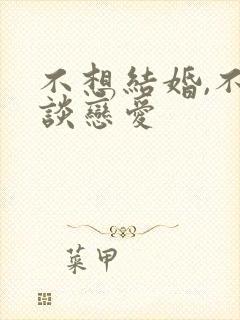 不想結婚,不
談戀愛
菜甲